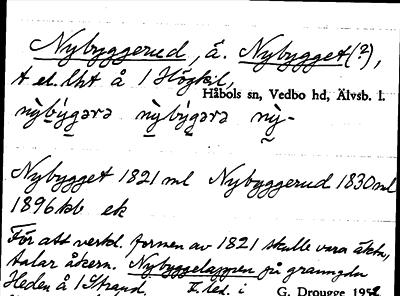 Nybyggerud, ä. Nybygget(?),
t el. lht å 1 Högkil,
Håbols sn, Vedbo hd, Älvsb. l.
nỳbýgərə nỳbýgərə nỳ-
Nybygget 1821 ml Nybyggerud 1830 ml
1896 kb ek
För att verkl. formen av 1821 skulle vara äkta,
talar åkern. Nybyggelappen på granngdn
Heden å 1 Strand. II. led. i G. Drougge 1952